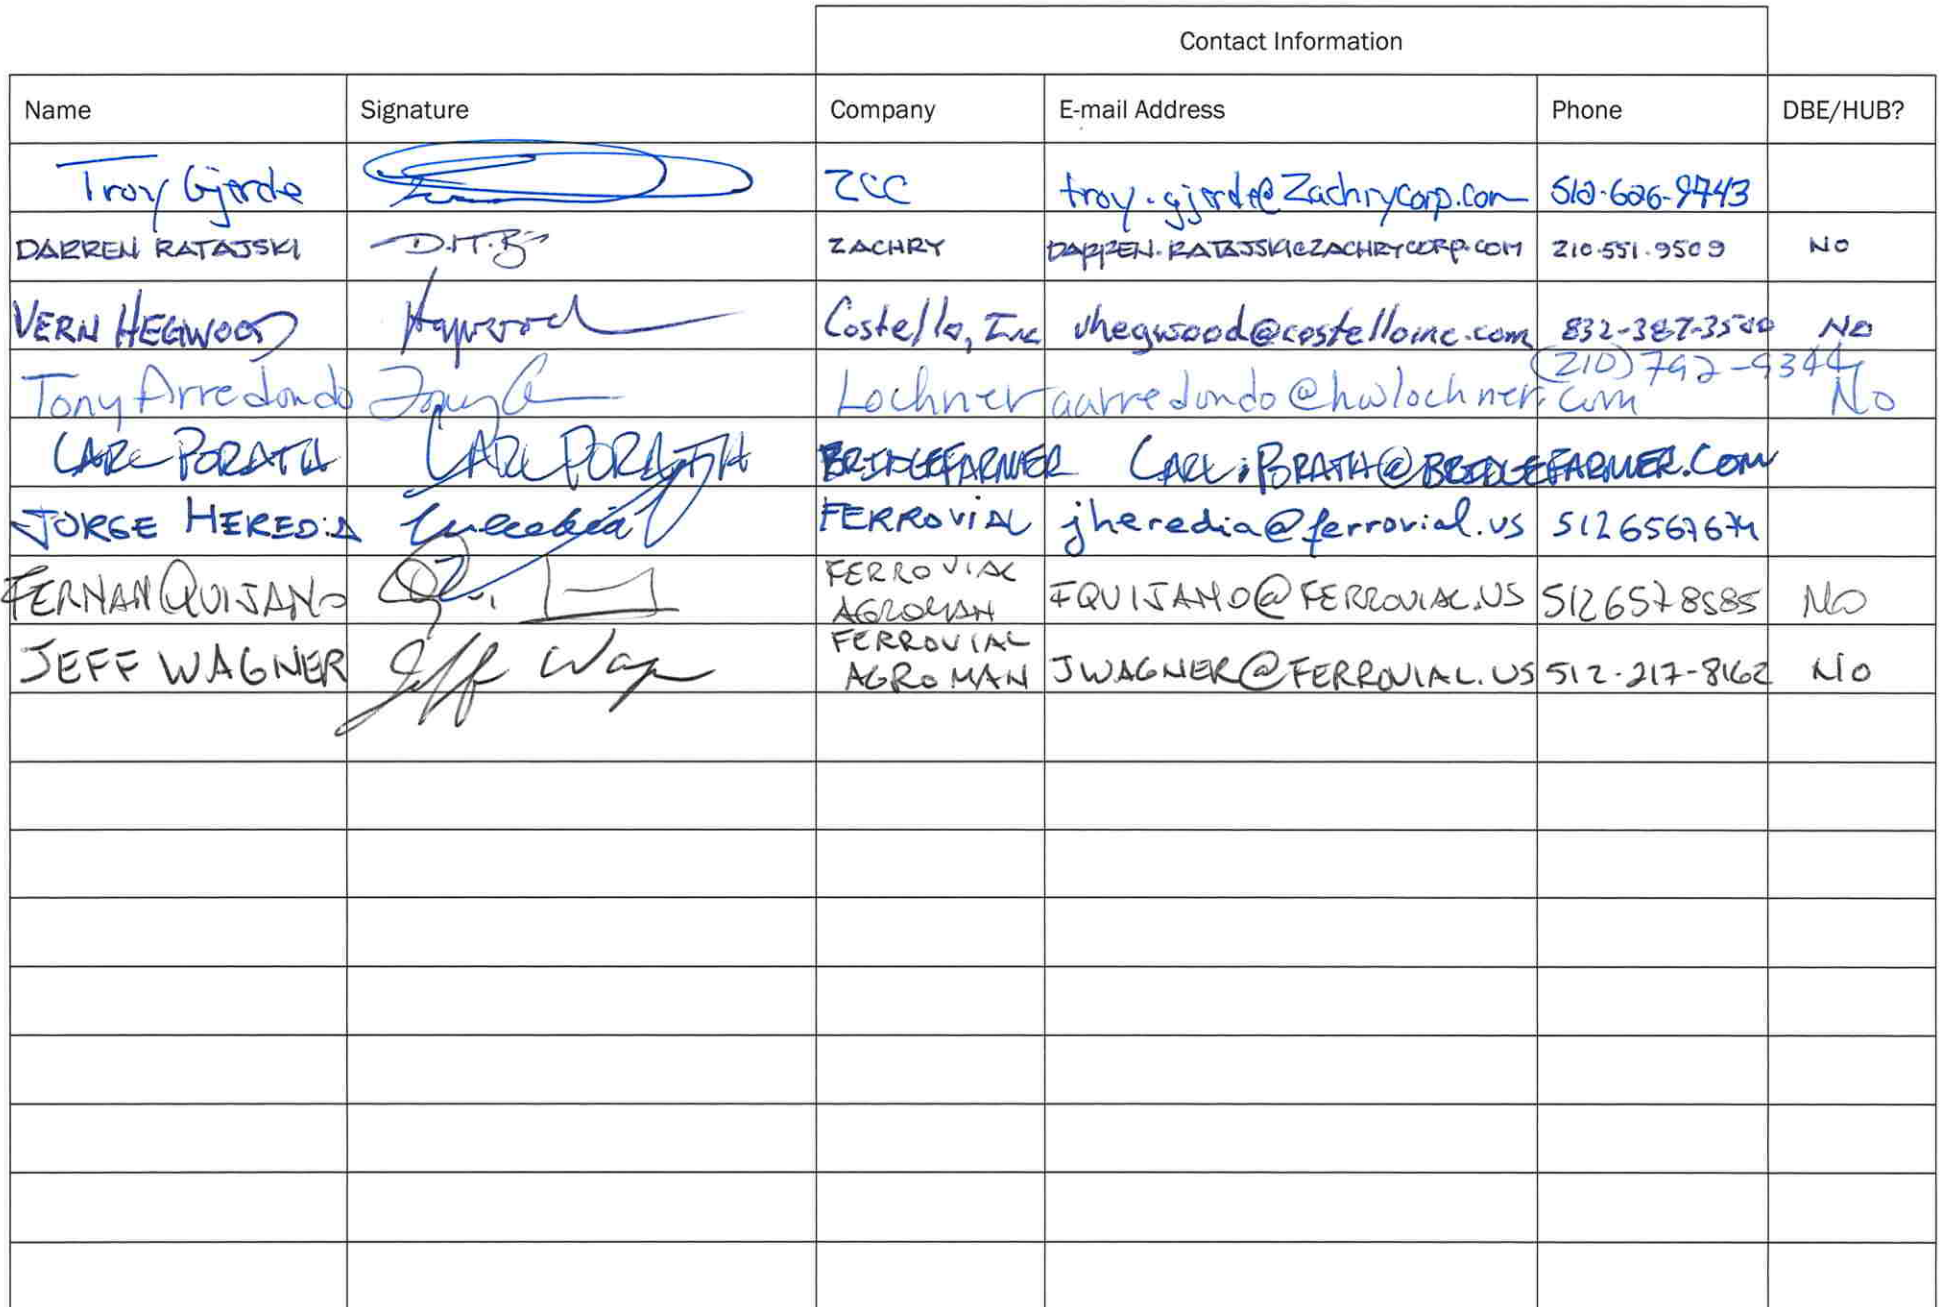 Contact Information
Name Signature Company E-mail Address Phone DBE/HUB?
Troy Gjerde ZCC troy.gjerde@Zachrycorp.com 512-626-9743
DARREN RATAJSKI ZACHRY DARREN.RATAJSKI@ZACHRYCORP.COM 210.551.9509 NO
VERN HEGWOOD Hegwood Costello, Inc vhegwood@costelloinc.com 832-387-3500 No
(210) 792-9344
Tony Arredondo Lochner aarredondo@hwlochner.com No
CARL PORATH CARL PORATH BRIDGEFARMER CARL.PORATH@BRIDGEFARMER.COM
JORGE HEREDIA FERROVIAL jheredia@ferrovial.us 5126567674
FERNAN QUIJANO FERROVIAL AGROMAN FQUIJANO@FERROVIAL.US 5126578585 NO
JEFF WAGNER Jeff Wagn FERROVIAL AGROMAN JWAGNER@FERROVIAL.US 512-217-8162 NO